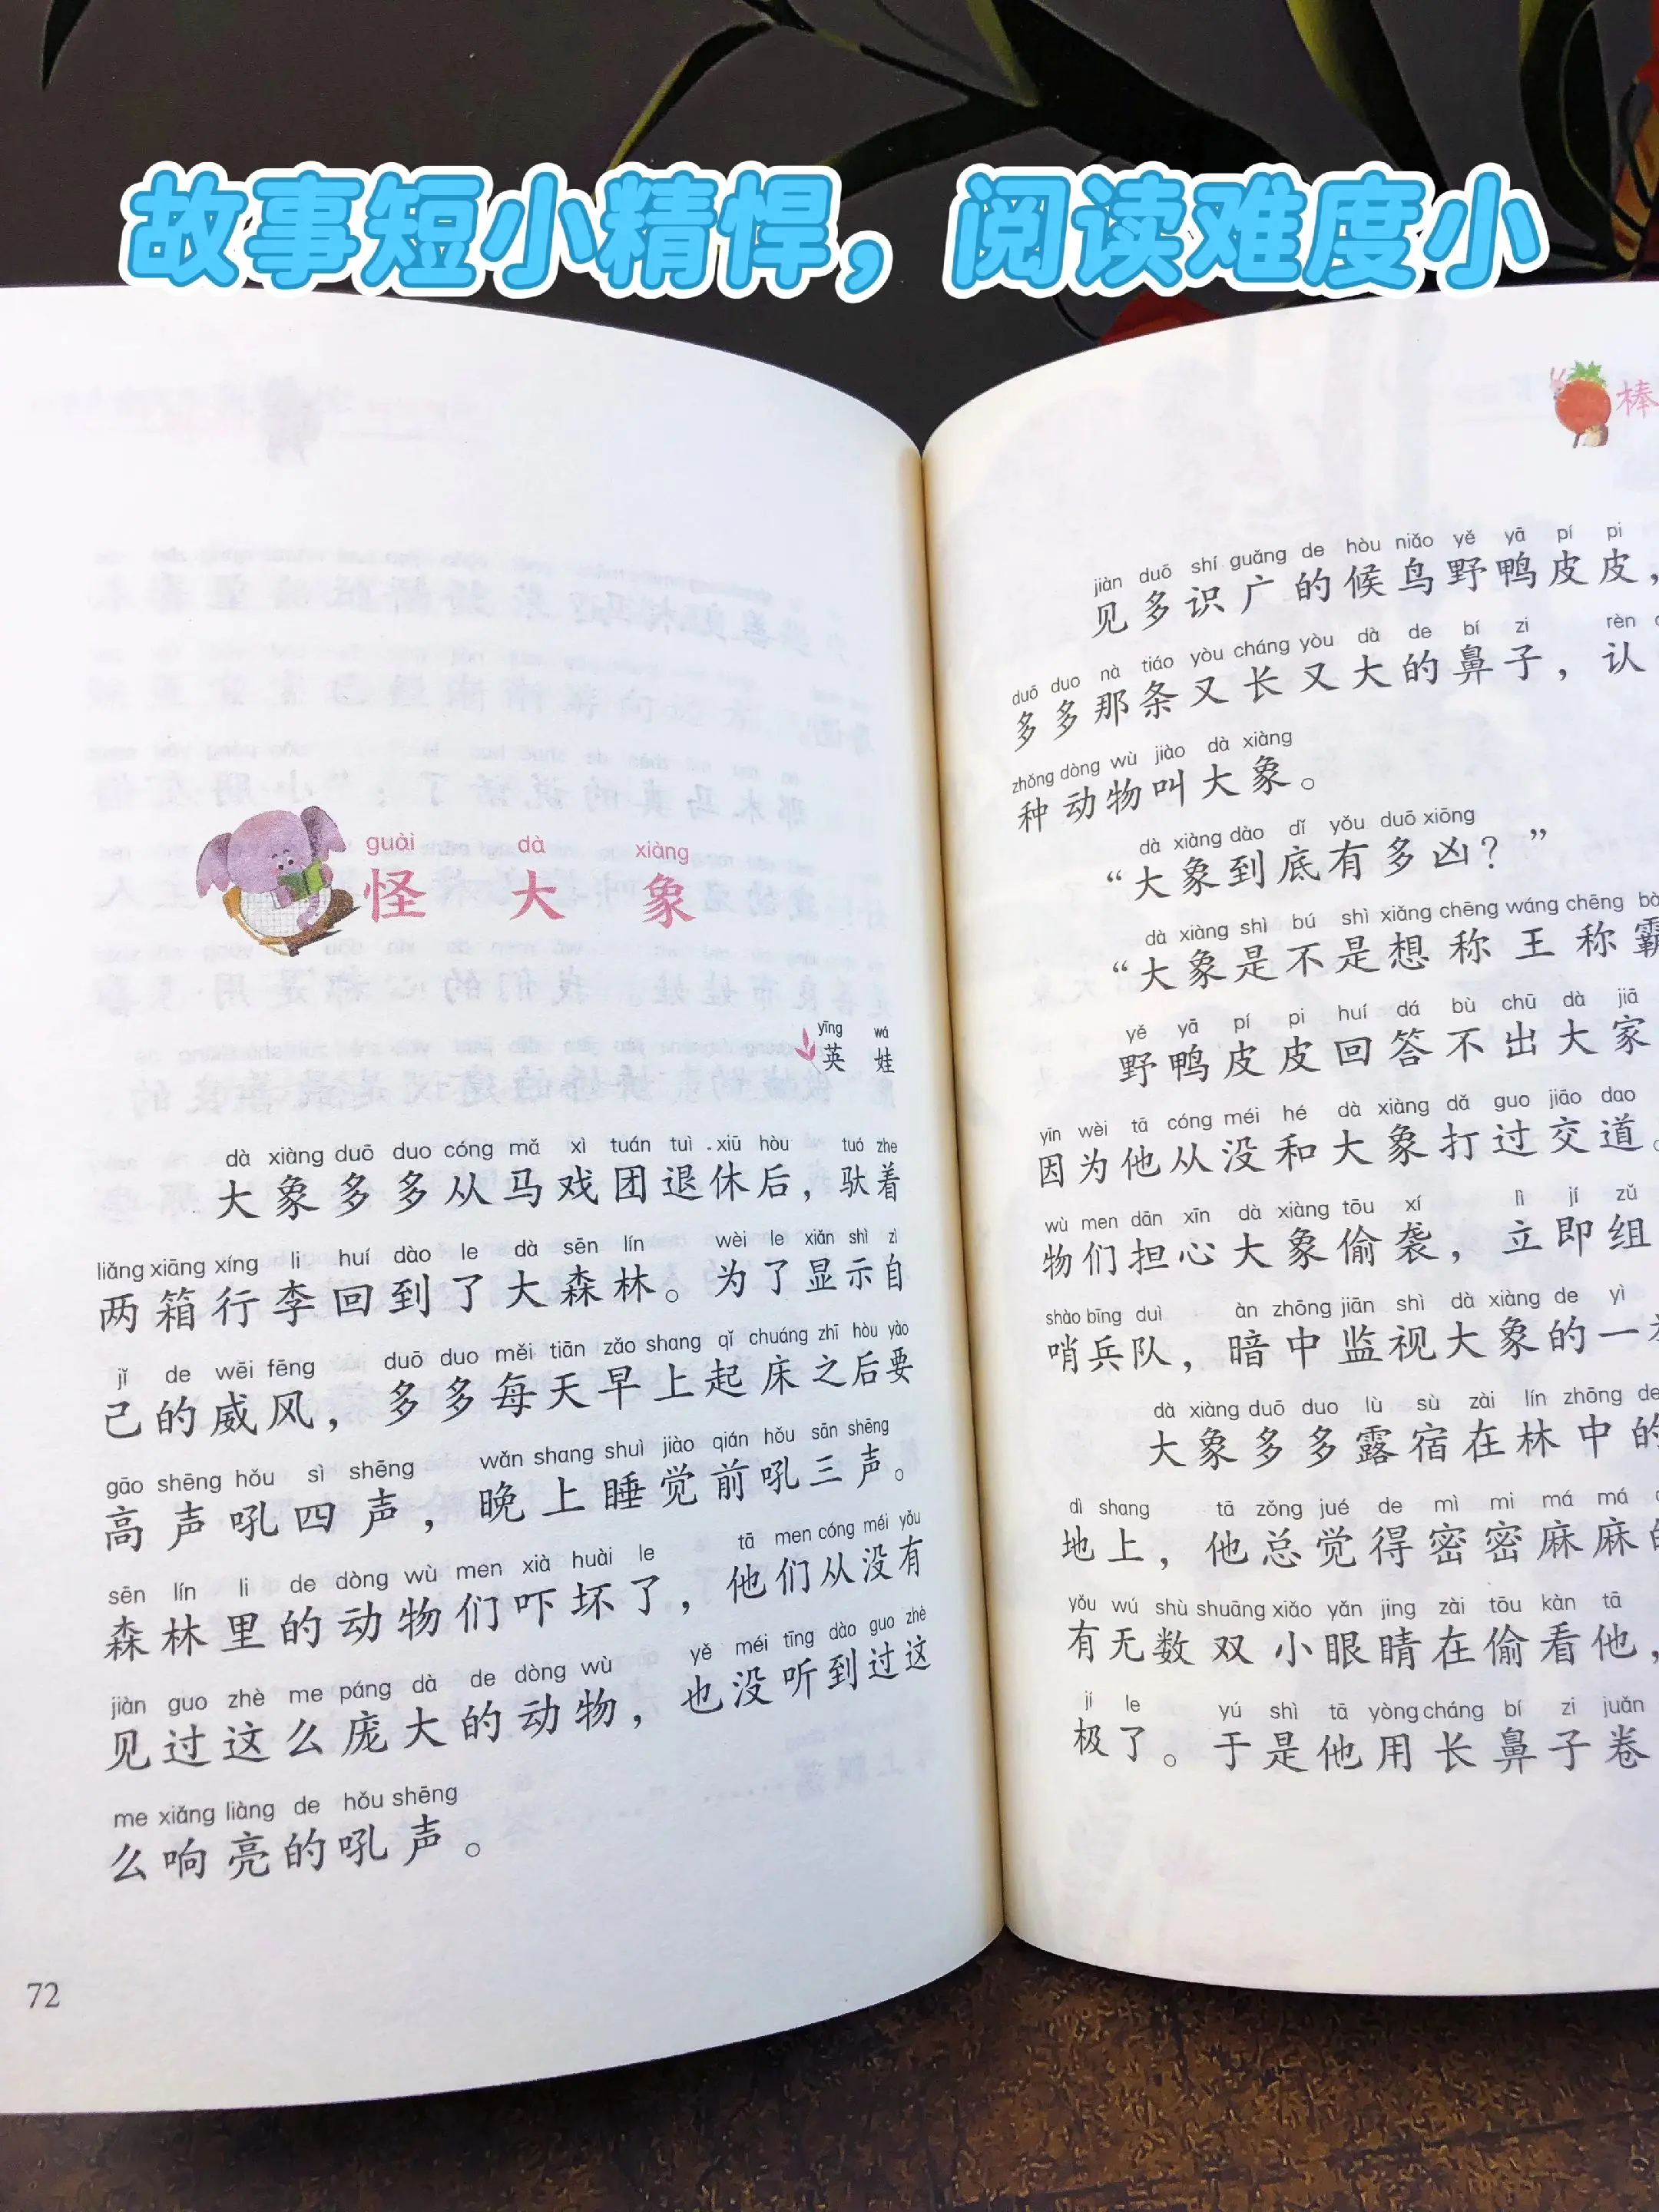 故事短小精悍，阅读难度小
guài dà xiàng
怪大象
yīng wá
英娃
dà xiàng duō duo cóng mǎ xì tuán tuì xiū hòu tuó zhe
大象多多从马戏团退休后，驮着
liǎng xiāng xíng li huí dào le dà sēn lín wèi le xiǎn shì zì
两箱行李回到了大森林。为了显示自
jǐ de wēi fēng duō duo měi tiān zǎo shang qǐ chuáng zhī hòu yào
己的威风，多多每天早上起床之后要
gāo shēng hǒu sì shēng wǎn shang shuì jiào qián hǒu sān shēng
高声吼四声，晚上睡觉前吼三声。
sēn lín li de dòng wù men xià huài le tā men cóng méi yǒu
森林里的动物们吓坏了，他们从没有
jiàn guo zhè me páng dà de dòng wù yě méi tīng dào guo zhè
见过这么庞大的动物，也没听到过这
me xiǎng liàng de hǒu shēng
么响亮的吼声。
72
棒
jiàn duō shí guǎng de hòu niǎo yě yā pí pi
见多识广的候鸟野鸭皮皮，
duō duo nà tiáo yòu cháng yòu dà de bí zi rèn
多多那条又长又大的鼻子，认
zhǒng dòng wù jiào dà xiàng
种动物叫大象。
dà xiàng dào dǐ yǒu duō xiōng
“大象到底有多凶？”
dà xiàng shì bú shì xiǎng chēng wáng chēng bà
“大象是不是想称王称霸
yě yā pí pi huí dá bù chū dà jiā
野鸭皮皮回答不出大家
yīn wèi tā cóng méi hé dà xiàng dǎ guo jiāo dao
因为他从没和大象打过交道。
wù men dān xīn dà xiàng tōu xí lì jí zǔ
物们担心大象偷袭，立即组
shào bīng duì àn zhōng jiān shì dà xiàng de yì
哨兵队，暗中监视大象的一
dà xiàng duō duo lù sù zài lín zhōng de
大象多多露宿在林中的
dì shang tā zǒng jué de mì mi má má
地上，他总觉得密密麻麻的
yǒu wú shù shuāng xiǎo yǎn jing zài tōu kàn tā
有无数双小眼睛在偷看他，
jí le yú shì tā yòng cháng bí zi juǎn
极了。于是他用长鼻子卷